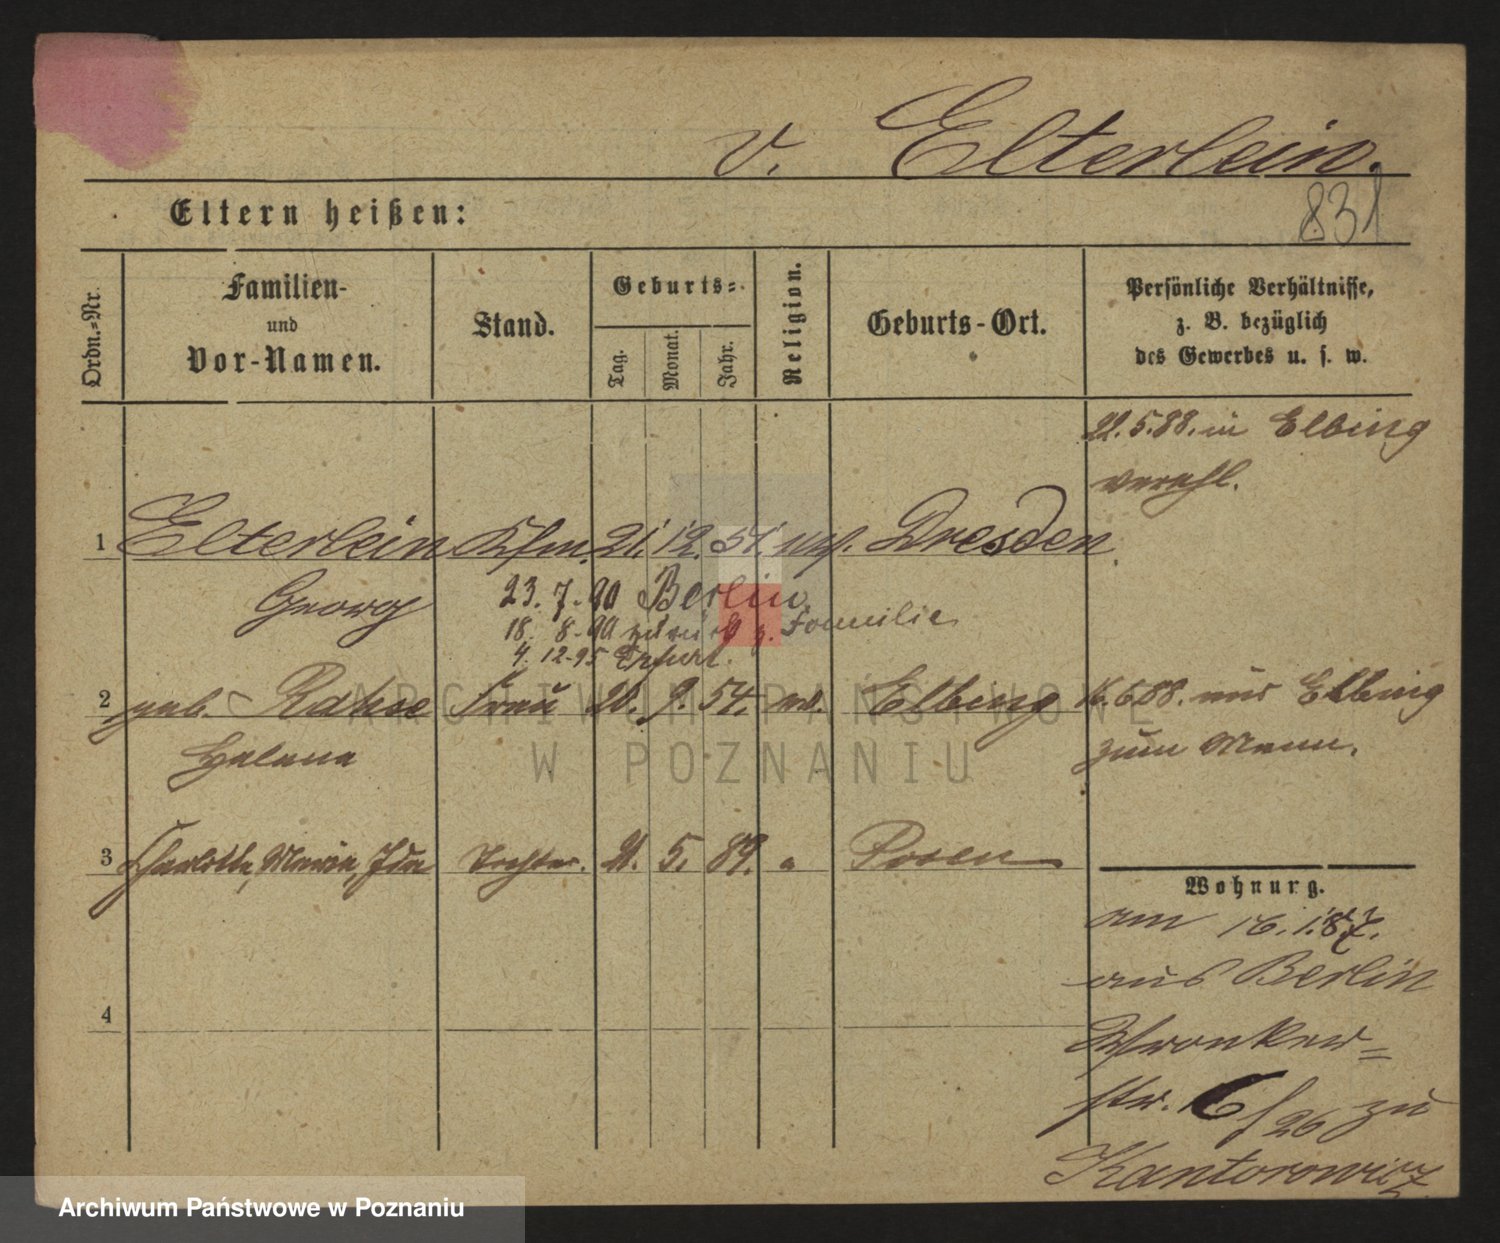 v. Elterlein.
Eltern heißen:
831
Ordn.-Nr.
Familien-
und
Vor-Namen.
Stand.
Geburts-
Tag.
Monat.
Jahr.
Religion.
Geburts-Ort.
Persönliche Verhältnisse,
z. B. bezüglich
des Gewerbes u. s. w.
5.88. in Elbing
verehl.
1 Elterlein Kfm. 21. 12. 51. Dresden
Georg
23. 7. 90 Berlin
18. 8. 90 zurück z. Familie
4. 12. 95 Erfurt.
2 geb. Rahse Frau 20. 9. 54. Elbing aus Elbing
Helene zum Mann.
3 Charlotte, Marie, Ida Tochter. 21. 5. 89. " Posen
Wohnung.
am 16. 1. 87.
aus Berlin
Wronker-
str. 6/26 zu
Kantorowicz
4
ARCHIWUM PAŃSTWOWE
W POZNANIU
Archiwum Państwowe w Poznaniu